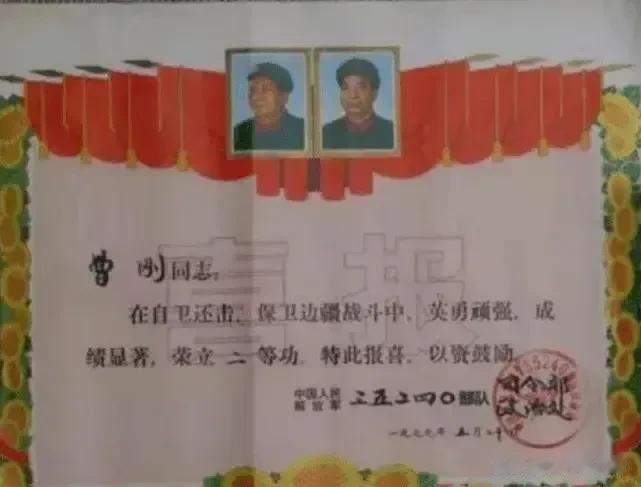 喜报
曹刚同志:
在自卫还击、保卫边疆战斗中,英勇顽强,成
绩显著,荣立二等功。特此报喜,以资鼓励。
中国人民
解放军 三五二四〇部队 司令部
政治处
一九七九年五月二十